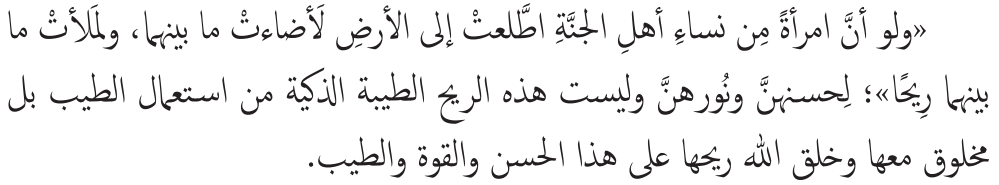 «ولو أنَّ امرأةً مِن نساءِ أهلِ الجنَّةِ اطَّلعتْ إلى الأرضِ لَأضاءتْ ما بينهما، ولملَأتْ ما
بينهما رِيحًا»؛ لِحسنهنَّ ونُورهنَّ وليست هذه الريح الطيبة الذكية من استعمال الطيب بل
مخلوق معها وخلق الله ريحها على هذا الحسن والقوة والطيب.